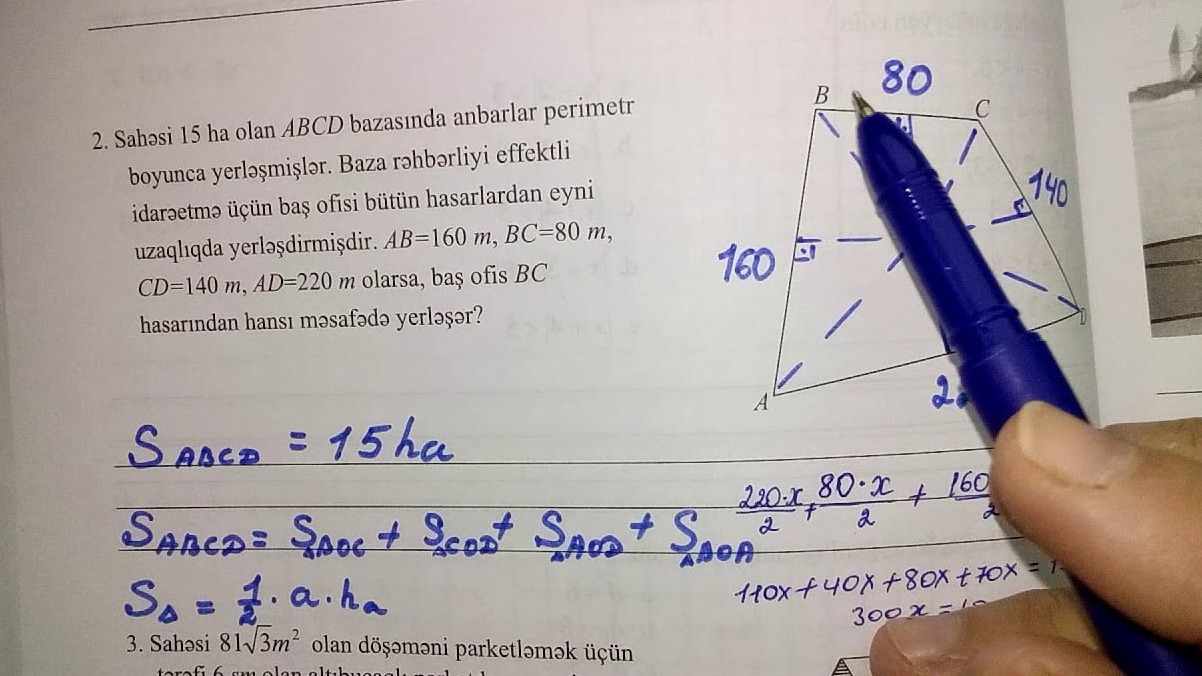 2. Sahəsi 15 ha olan ABCD bazasında anbarlar perimetr
boyunca yerləşmişlər. Baza rəhbərliyi effektli
idarəetmə üçün baş ofisi bütün hasarlardan eyni
uzaqlıqda yerləşdirmişdir. AB=160 m, BC=80 m,
CD=140 m, AD=220 m olarsa, baş ofis BC
hasarından hansı məsafədə yerləşər?
B
80
C
140
160
A
2
S ABCD = 15 ha
220·x/2 + 80·x/2 + 160
S ABCD = S△BOC + S△COD + S△AOD + S△BOA
110x+40x+80x+70x = 1
S△ = 1/2 · a · ha
300x =
3. Sahəsi 81√3m² olan döşəməni parketləmək üçün
tərəfi 6 sm olan